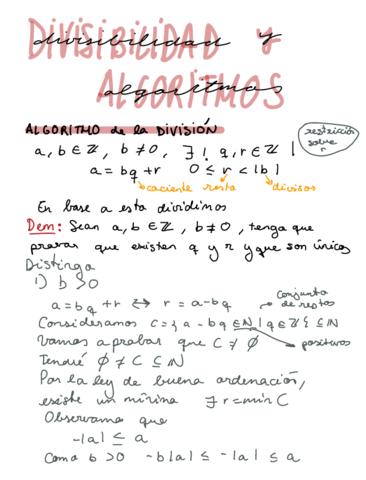 DIVISIBILIDAD y
divisibilidad y
ALGORITMOS
algoritmos
ALGORITMO de la DIVISIÓN
restricción sobre r
a, b ∈ ℤ, b ≠ 0, ∃! q, r ∈ ℤ |
a = bq + r 0 ≤ r < |b|
cociente resto divisor
En base a esta dividimos
Dem: Sean a, b ∈ ℤ, b ≠ 0, tengo que
probar que existen q y r y que son únicos
Distingo
1) b > 0
a = bq + r ↔ r = a - bq
conjunto de restos
Consideramos C = { a - bq ∈ ℕ | q ∈ ℤ } ⊆ ℕ
positivos
Vamos a probar que C ≠ ∅
Tendré ∅ ≠ C ⊆ ℕ
Por la ley de buena ordenación,
existe un mínimo ∃ r = min C
Observamos que
-|a| ≤ a
Como b > 0 -b|a| ≤ -|a| ≤ a